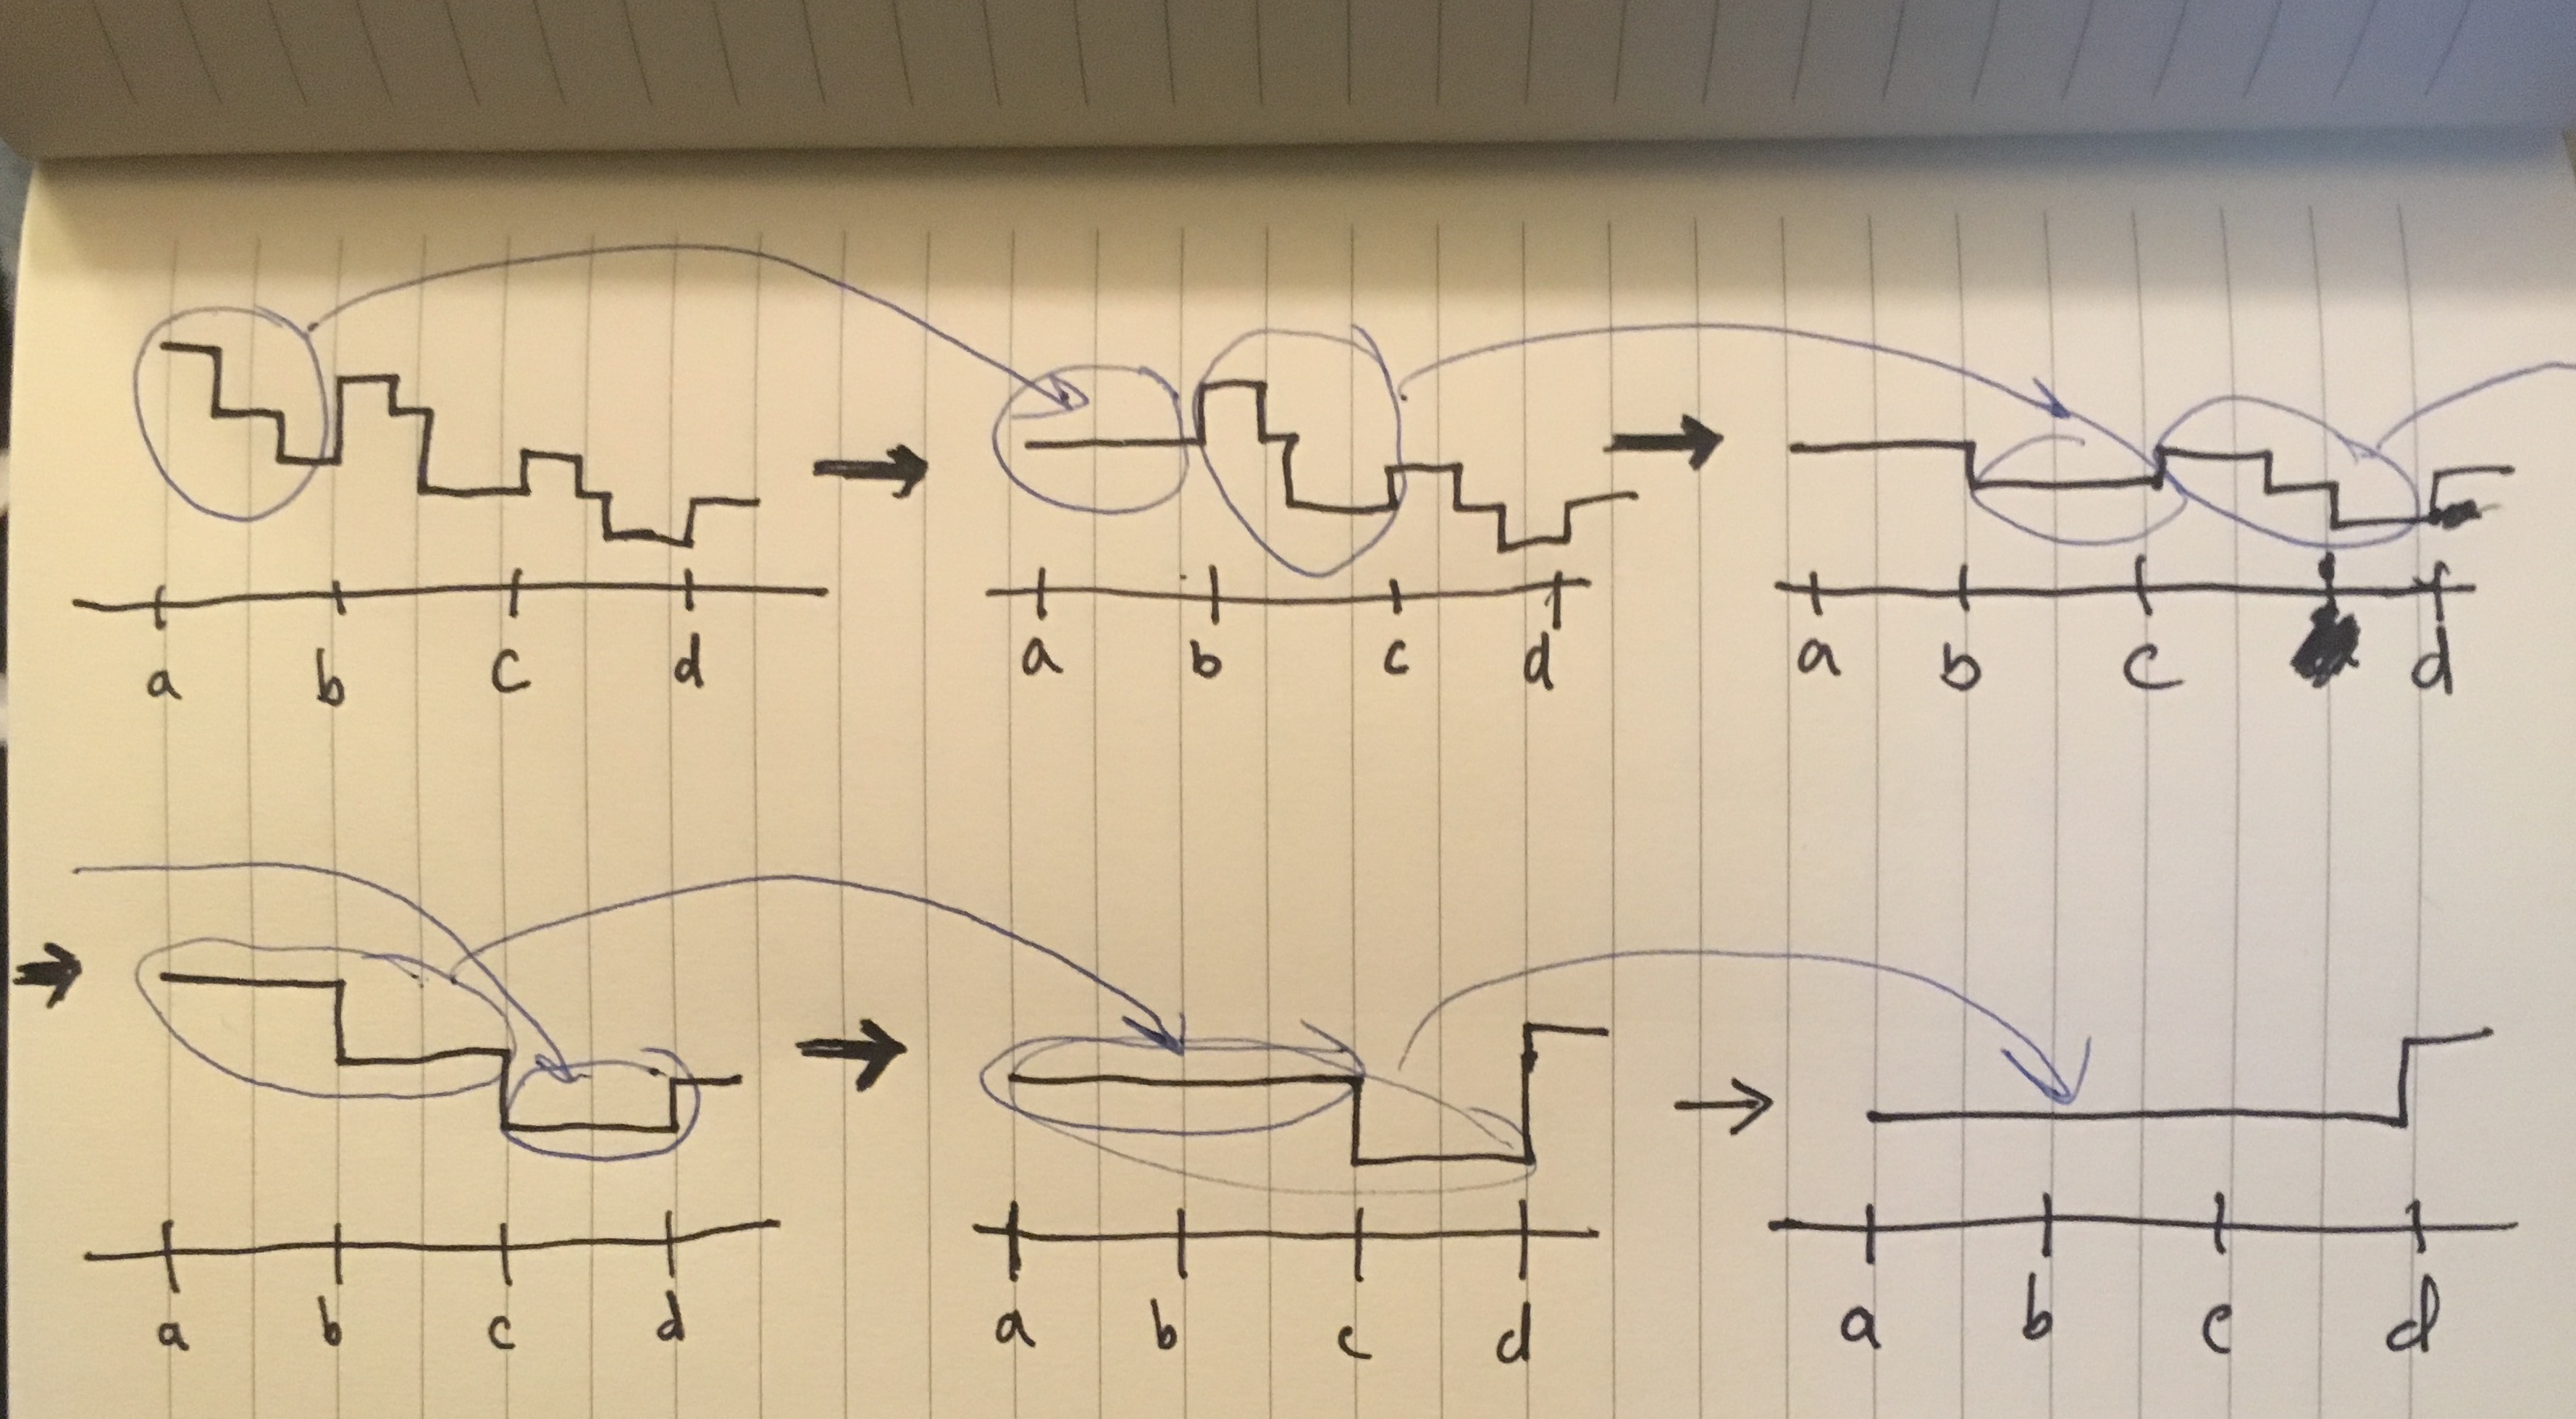 a b c d
a b c d
a b c d
a b c d
a b c d
a b c d